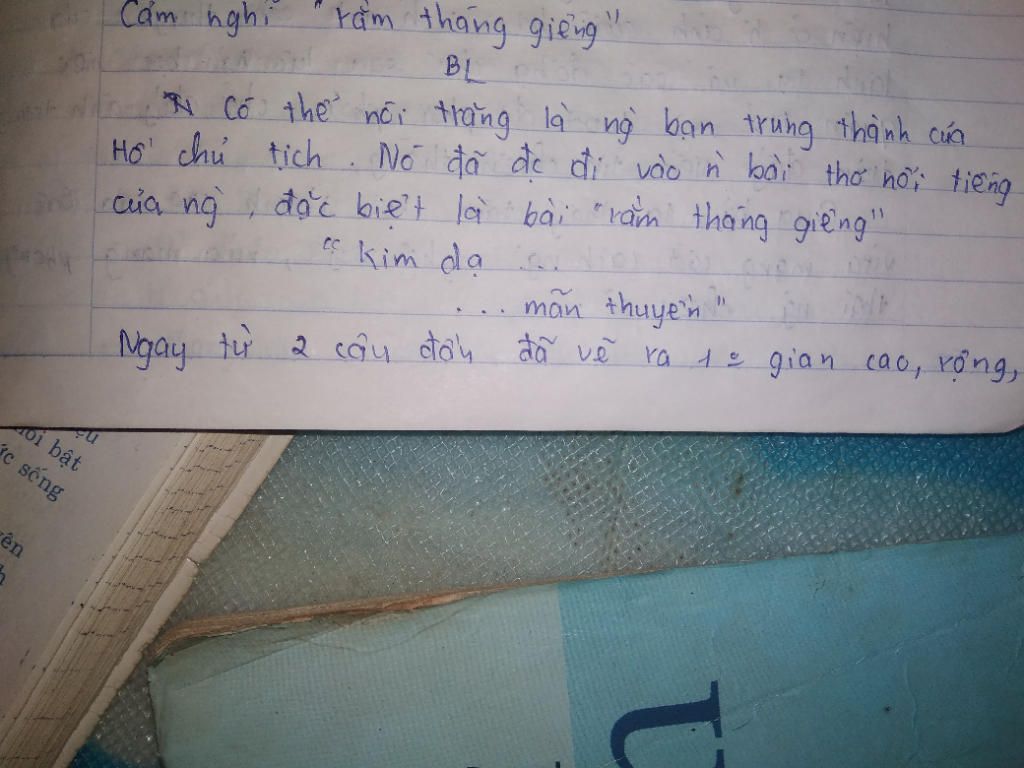 Cảm nghĩ "rằm tháng giêng"
BL
Có thể nói trăng là ng` bạn trung thành của
Hồ chủ tịch. Nó đã đc đi vào n~ bài thơ nổi tiếng
của ng`, đặc biệt là bài "rằm tháng giêng"
"Kim dạ ...
... mãn thuyền"
Ngay từ 2 câu đầu đã vẽ ra 1 = gian cao, rộng,
ổi bật
ức sống
ên
U